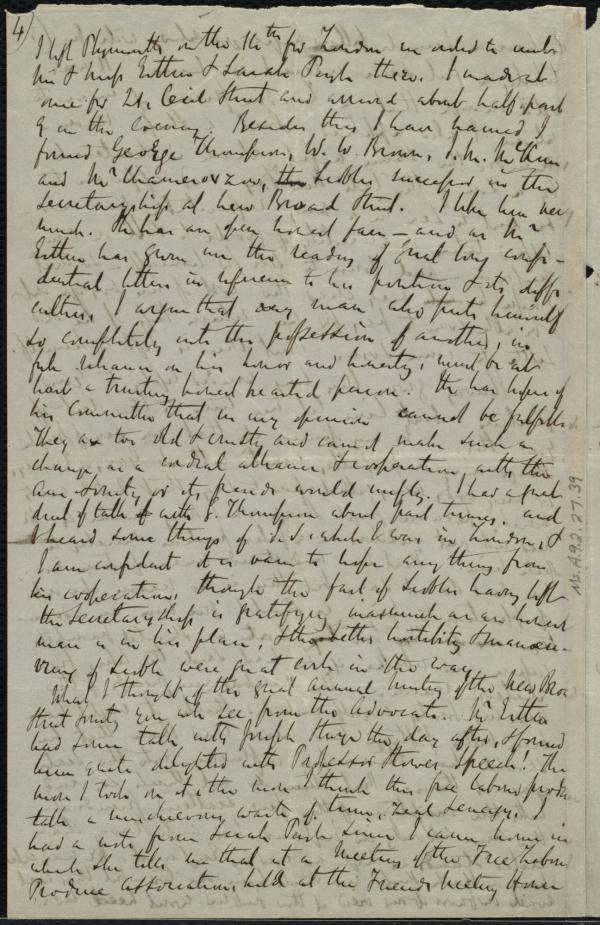 4)
I left Plymouth on the 16th for London in order to meet
Mr & Miss Estlin & Sarah Pugh there. I made at
once for 21, Cecil Street and arrived about half past
9 in the evening. Besides those I have named I
found George Thompson, W. W. Brown, J. M. McKim
and Mr Chamerovzow, the Scobles successor in the
Secretaryship at New Broad Street. I like him very
much. He has an open honest face — and as Mr
Estlin has given me the reading of great long confi-
dential letters in reference to his position & its diffi-
culties, I argue that any man who puts himself
so completely into the possession of another, in
full reliance on his honor and honesty, must be at
heart a trusting honest hearted person. He has hopes of
his Committee that in my opinion cannot be fulfilled
They are too old & crusty and cannot make such a
change, as a cordial alliance & cooperation, with the
Am Society or its friends would imply. I had a great
deal of talk of with G. Thompson about past times. and
I heard some things of J. S. which I was in London, &
I am confident it is vain to hope anything from
his cooperation, though the fact of Scobles having left
the Secretaryship is gratifying inasmuch as an honest
man is in his place, & the bitter hostility & manoeu-
vring of Scoble were great evils in the way
What I thought of the great annual meeting of the New Broad
Street Society you will see from the Advocate. Mr Estlin
had some talk with Joseph Sturge the day after, & found
him quite delighted with Professor Stowes speech! The
more I look on it the more I think this free labour produce
talk a mischievous waste of time, zeal & energy. I
had a note from Sarah Pugh since I came home in
which she tells me that at a meeting of the Free Labour
Produce Association, held at the Friends Meeting House
Ms. A.9.2. 27. 39